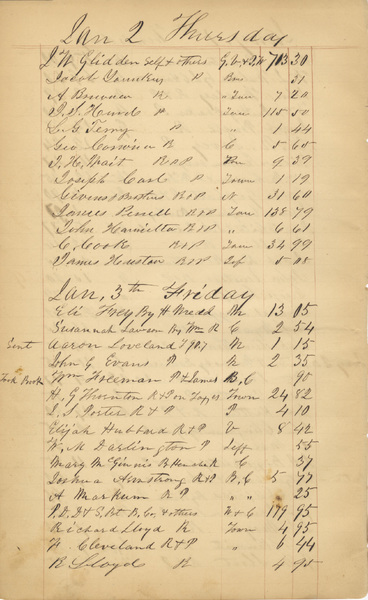 Jan 2 Thursday
J W Glidden Self & others 713 30
Jacob P 31
A Brewen R Town 7 20
J. S. Hurd P Town 115 50
L. G. Terry P " 1 44
Geo Corwin R C 5 65
J. H. Wait R & P 9 39
Joseph Carl P Town 1 19
Givens Brothers R & P N 31 60
James Pursell R & P Town 138 79
John Hamilton R & P " 6 61
C. Cook R & P Town 34 99
James Huston R & P Jef 5 08
Jan, 3th Friday
Eli Frey By H 13 05
Susannah Lawson By Wm R C 2 54
Sent Aaron Loveland 1 15
John G Evans P 2 35
Took Wm Freeman P & James B, C 90
H. G Thornton R & P on Taxes Town 24 82
L. S. Foster R & P P 4 10
Elijah Hubbard R & P V 8 42
W. M Darlington P Jeff 55
Mary McGinnis C 37
Joshua Armstrong R & P B, C 5 77
A Markum R P " " 25
& others 179 95
Richard Lloyd R Town 4 95
F. Cleveland R & P " 6 44
R Lloyd R 4 95